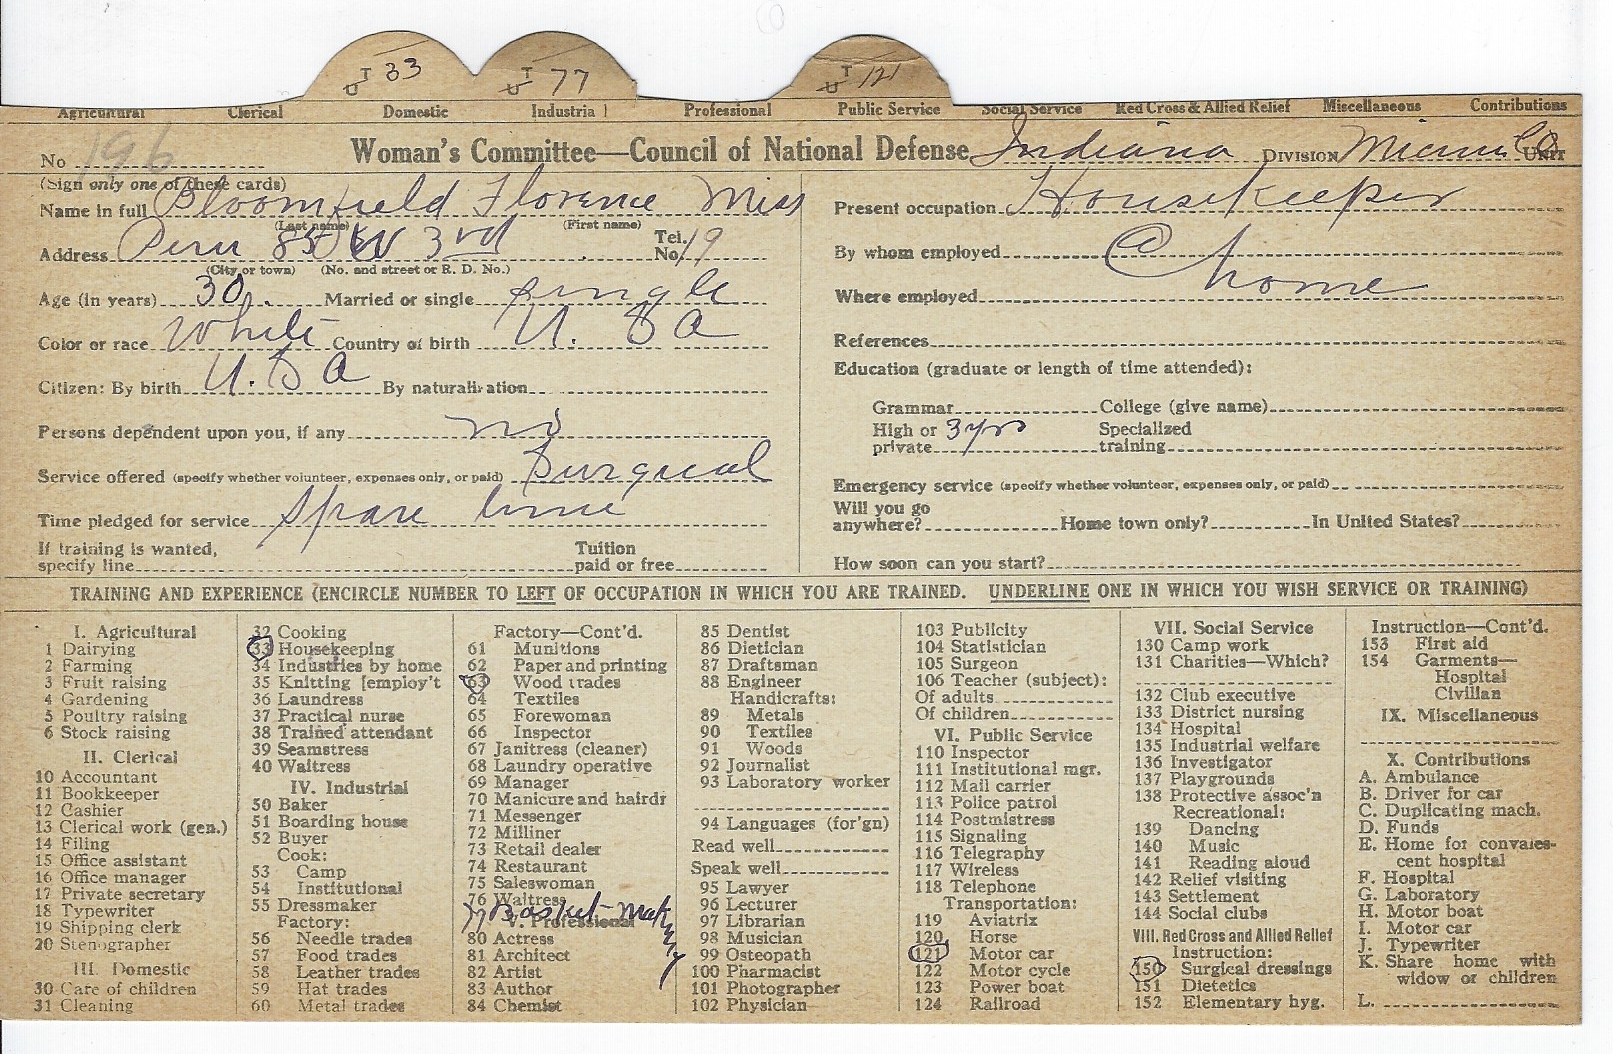 T 33 T 77 T 121
U U U
Agricultural Clerical Domestic Industrial Professional Public Service Social Service Red Cross & Allied Relief Miscellaneous Contributions
No 196 Woman's Committee—Council of National Defense Indiana DIVISION Miami Co UNIT
(Sign only one of these cards)
Name in full Bloomfield Florence Miss
(Last name) (First name)
Address Peru 85 W 3rd Tel. No. 19
(City or town) (No. and street or R. D. No.)
Age (in years) 30 Married or single single
Color or race White Country of birth U. S A
Citizen: By birth U. S A By naturalization
Persons dependent upon you, if any no
Service offered (specify whether volunteer, expenses only, or paid) Surgical
Time pledged for service Spare time
If training is wanted, Tuition
specify line paid or free
Present occupation Housekeeper
By whom employed @
Where employed home
References
Education (graduate or length of time attended):
Grammar College (give name)
High or 3 yrs Specialized
private training
Emergency service (specify whether volunteer, expenses only, or paid)
Will you go
anywhere? Home town only? In United States?
How soon can you start?
TRAINING AND EXPERIENCE (ENCIRCLE NUMBER TO LEFT OF OCCUPATION IN WHICH YOU ARE TRAINED. UNDERLINE ONE IN WHICH YOU WISH SERVICE OR TRAINING)
I. Agricultural
1 Dairying
2 Farming
3 Fruit raising
4 Gardening
5 Poultry raising
6 Stock raising
II. Clerical
10 Accountant
11 Bookkeeper
12 Cashier
13 Clerical work (gen.)
14 Filing
15 Office assistant
16 Office manager
17 Private secretary
18 Typewriter
19 Shipping clerk
20 Stenographer
III. Domestic
30 Care of children
31 Cleaning
32 Cooking
33 Housekeeping
34 Industries by home
35 Knitting [employ't
36 Laundress
37 Practical nurse
38 Trained attendant
39 Seamstress
40 Waitress
IV. Industrial
50 Baker
51 Boarding house
52 Buyer
Cook:
53 Camp
54 Institutional
55 Dressmaker
Factory:
56 Needle trades
57 Food trades
58 Leather trades
59 Hat trades
60 Metal trades
Factory—Cont'd.
61 Munitions
62 Paper and printing
63 Wood trades
64 Textiles
65 Forewoman
66 Inspector
67 Janitress (cleaner)
68 Laundry operative
69 Manager
70 Manicure and hairdr
71 Messenger
72 Milliner
73 Retail dealer
74 Restaurant
75 Saleswoman
76 Waitress
77 Basket-Making
V. Professional
80 Actress
81 Architect
82 Artist
83 Author
84 Chemist
85 Dentist
86 Dietician
87 Draftsman
88 Engineer
Handicrafts:
89 Metals
90 Textiles
91 Woods
92 Journalist
93 Laboratory worker
94 Languages (for'gn)
Read well
Speak well
95 Lawyer
96 Lecturer
97 Librarian
98 Musician
99 Osteopath
100 Pharmacist
101 Photographer
102 Physician
103 Publicity
104 Statistician
105 Surgeon
106 Teacher (subject):
Of adults
Of children
VI. Public Service
110 Inspector
111 Institutional mgr.
112 Mail carrier
113 Police patrol
114 Postmistress
115 Signaling
116 Telegraphy
117 Wireless
118 Telephone
Transportation:
119 Aviatrix
120 Horse
121 Motor car
122 Motor cycle
123 Power boat
124 Railroad
VII. Social Service
130 Camp work
131 Charities—Which?
132 Club executive
133 District nursing
134 Hospital
135 Industrial welfare
136 Investigator
137 Playgrounds
138 Protective assoc'n
Recreational:
139 Dancing
140 Music
141 Reading aloud
142 Relief visiting
143 Settlement
144 Social clubs
VIII. Red Cross and Allied Relief
Instruction:
150 Surgical dressings
151 Dietetics
152 Elementary hyg.
Instruction—Cont'd.
153 First aid
154 Garments—
Hospital
Civilian
IX. Miscellaneous
X. Contributions
A. Ambulance
B. Driver for car
C. Duplicating mach.
D. Funds
E. Home for convales-
cent hospital
F. Hospital
G. Laboratory
H. Motor boat
I. Motor car
J. Typewriter
K. Share home with
widow or children
L.